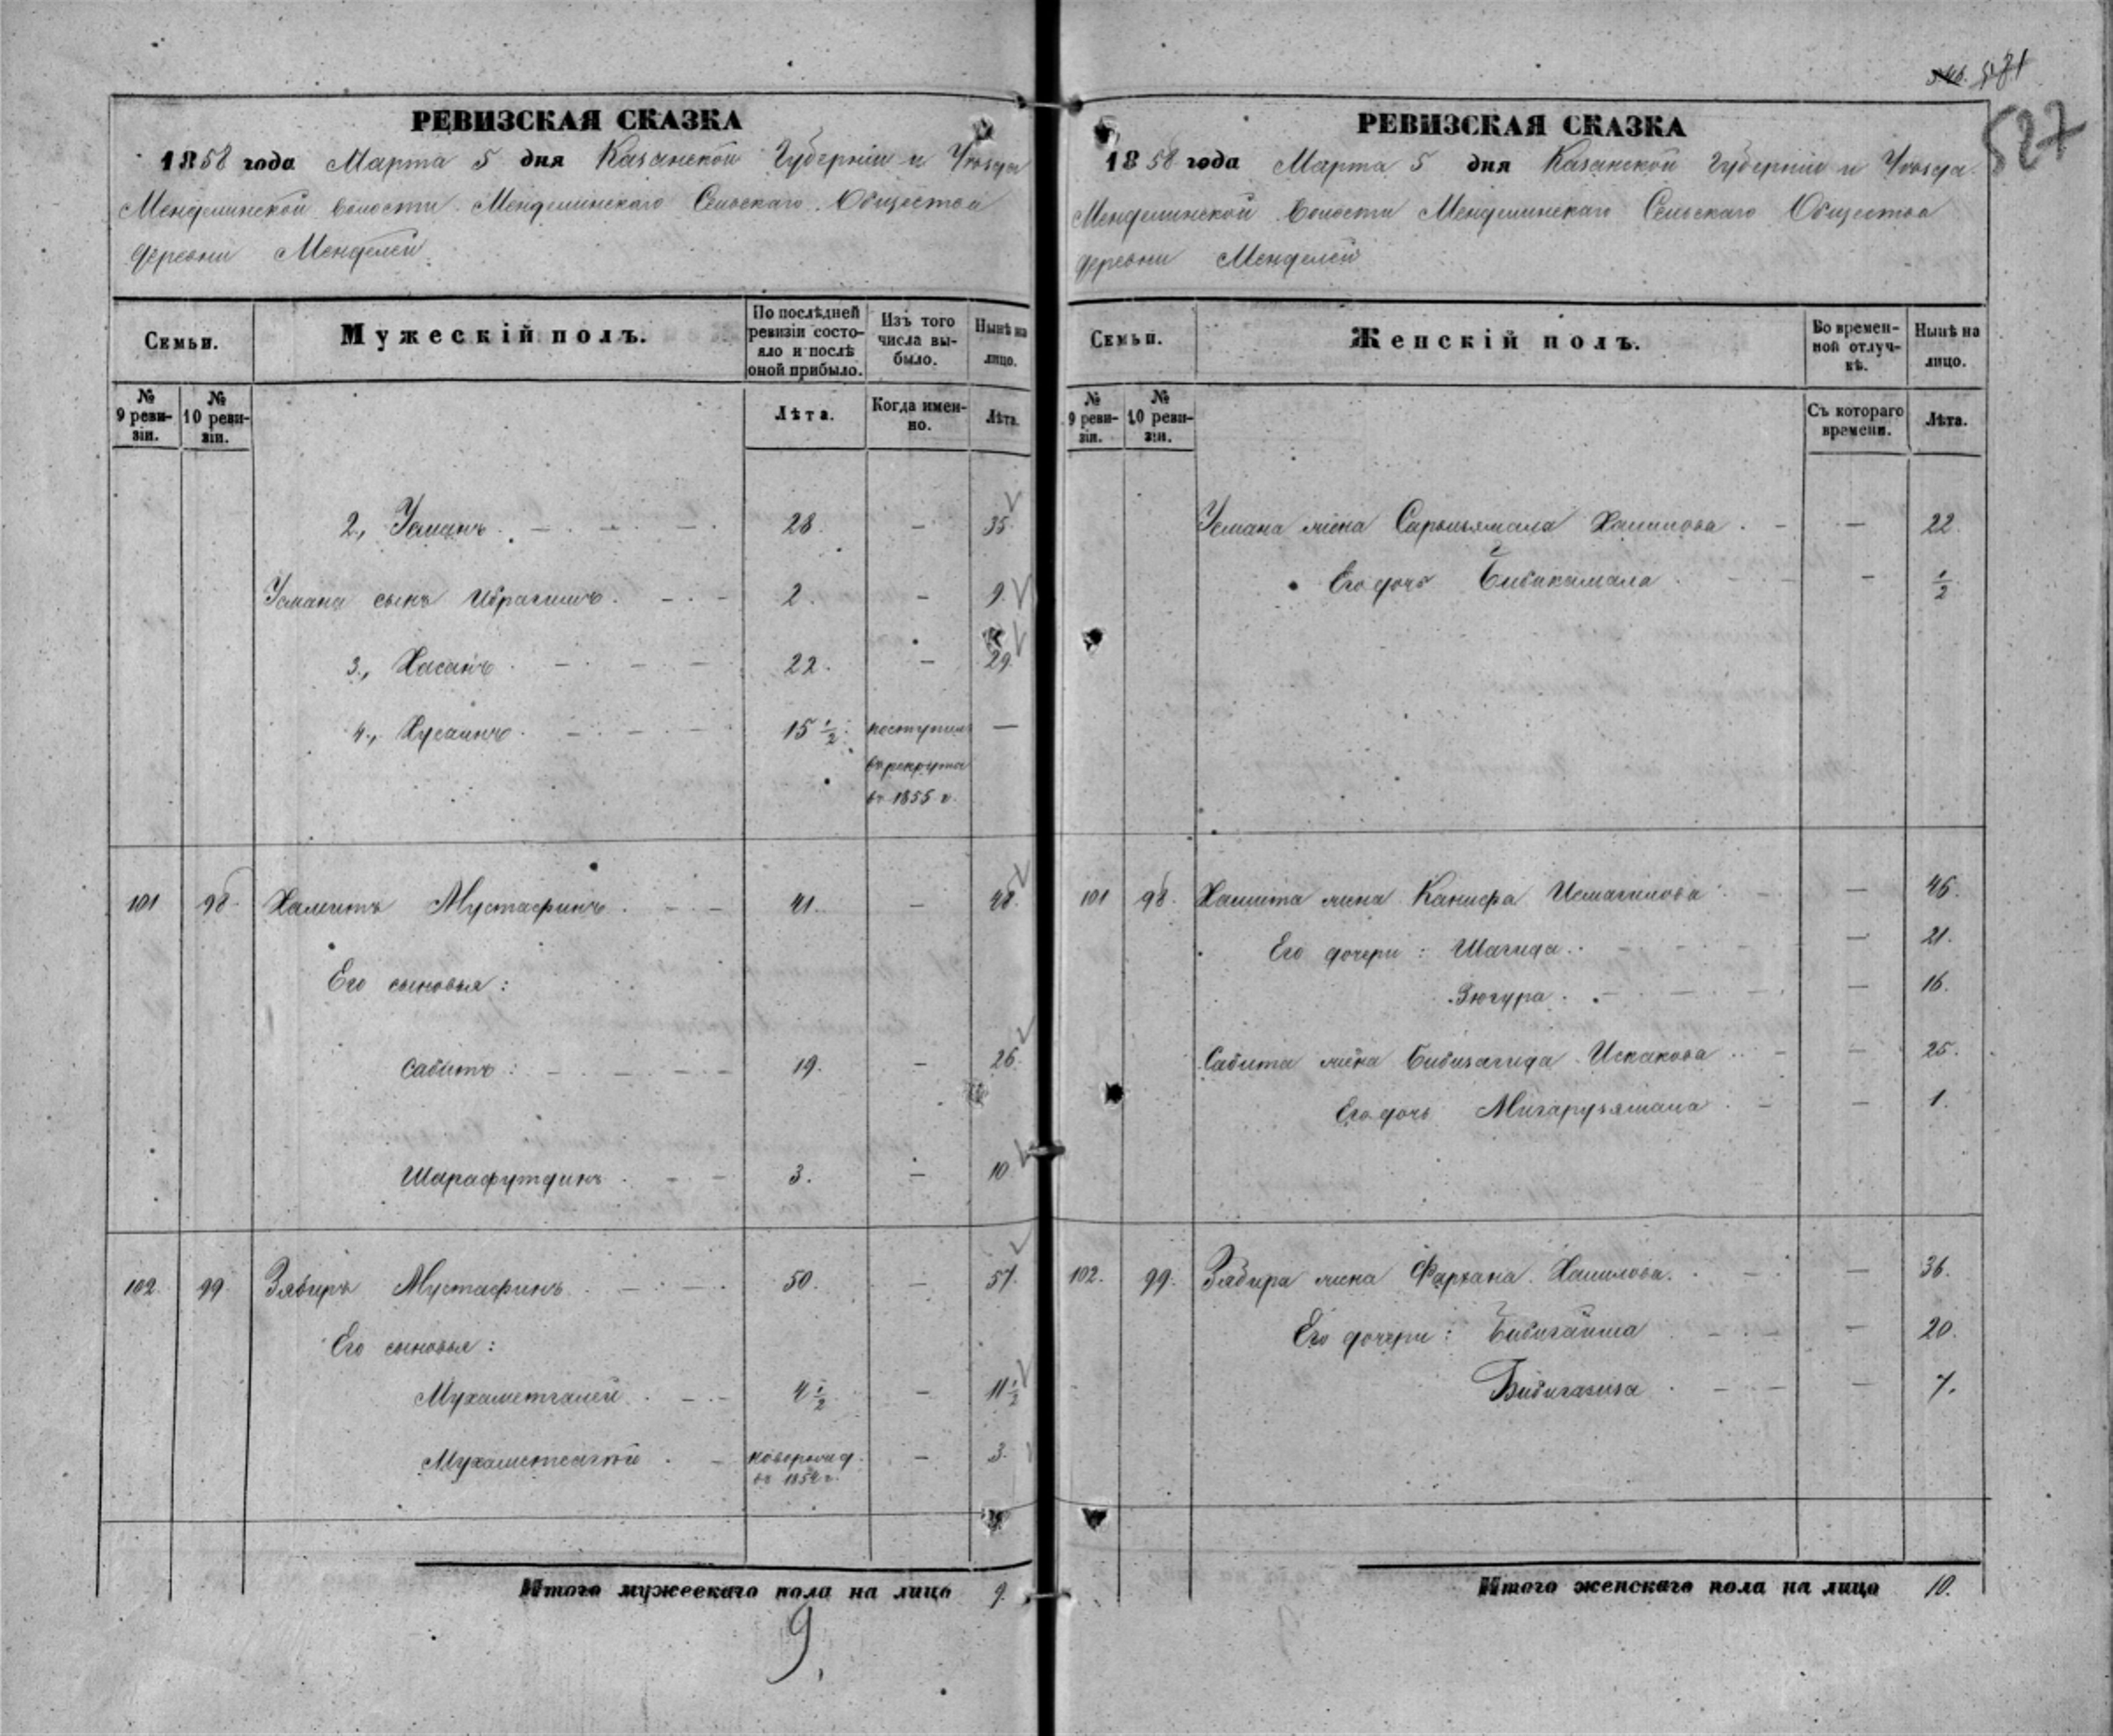 527
РЕВИЗСКАЯ СКАЗКА
1858 года Марта 5 дня Казанской Губерніи и Уѣзда
Менделинской волости Менделинскаго Сельскаго Общества
деревни Менделей
Семьи.
Мужескій полъ.
По послѣдней ревизіи состояло и послѣ оной прибыло.
Изъ того числа выбыло.
Нынѣ на лицо.
№ 9 ревизіи.
№ 10 ревизіи.
Лѣта.
Когда именно.
Лѣта.
2, Усманъ. 28. — 35.
Усмана сынъ Ибрагимъ. 2. — 9.
3, Хасанъ. 22. — 29.
4, Хусаинъ. 15 1/2. поступилъ —
въ рекруты
въ 1855 г.
101 98. Хамитъ Мустафинъ. 41. — 48.
Его сыновья:
Сабитъ: 19. — 26.
Шарафутдинъ. 3. — 10.
102. 99. Зябиръ Мустафинъ. 50. — 57.
Его сыновья:
Мухаметгалей. 4 1/2. — 11 1/2
Мухаметсагтй. новорожд. — 3.
въ 1854 г.
Итого мужескаго пола на лицо 9.
9.
РЕВИЗСКАЯ СКАЗКА
1858 года Марта 5 дня Казанской Губерніи и Уѣзда
Менделинской Волости Менделинскаго Сельскаго Общества
деревни Менделей
Семьи.
Женскій полъ.
Во временной отлучкѣ.
Нынѣ на лицо.
№ 9 ревизіи.
№ 10 ревизіи.
Съ котораго времени.
Лѣта.
Усмана жена Халитова. — 22.
Его дочь Бибикамала — 1/2
101 98. Хамита жена Канифа Исмагилова — 46.
Его дочери: Шагида. — 21.
Зюгура. — 16.
Сабита жена Бибизагида Искакова — 25.
Его дочь — 1.
102. 99. Зябира жена Фархана Халилова. — 36.
Его дочери: Бибигайша — 20.
Бибигазиза — 7.
Итого женскаго пола на лицо 10.